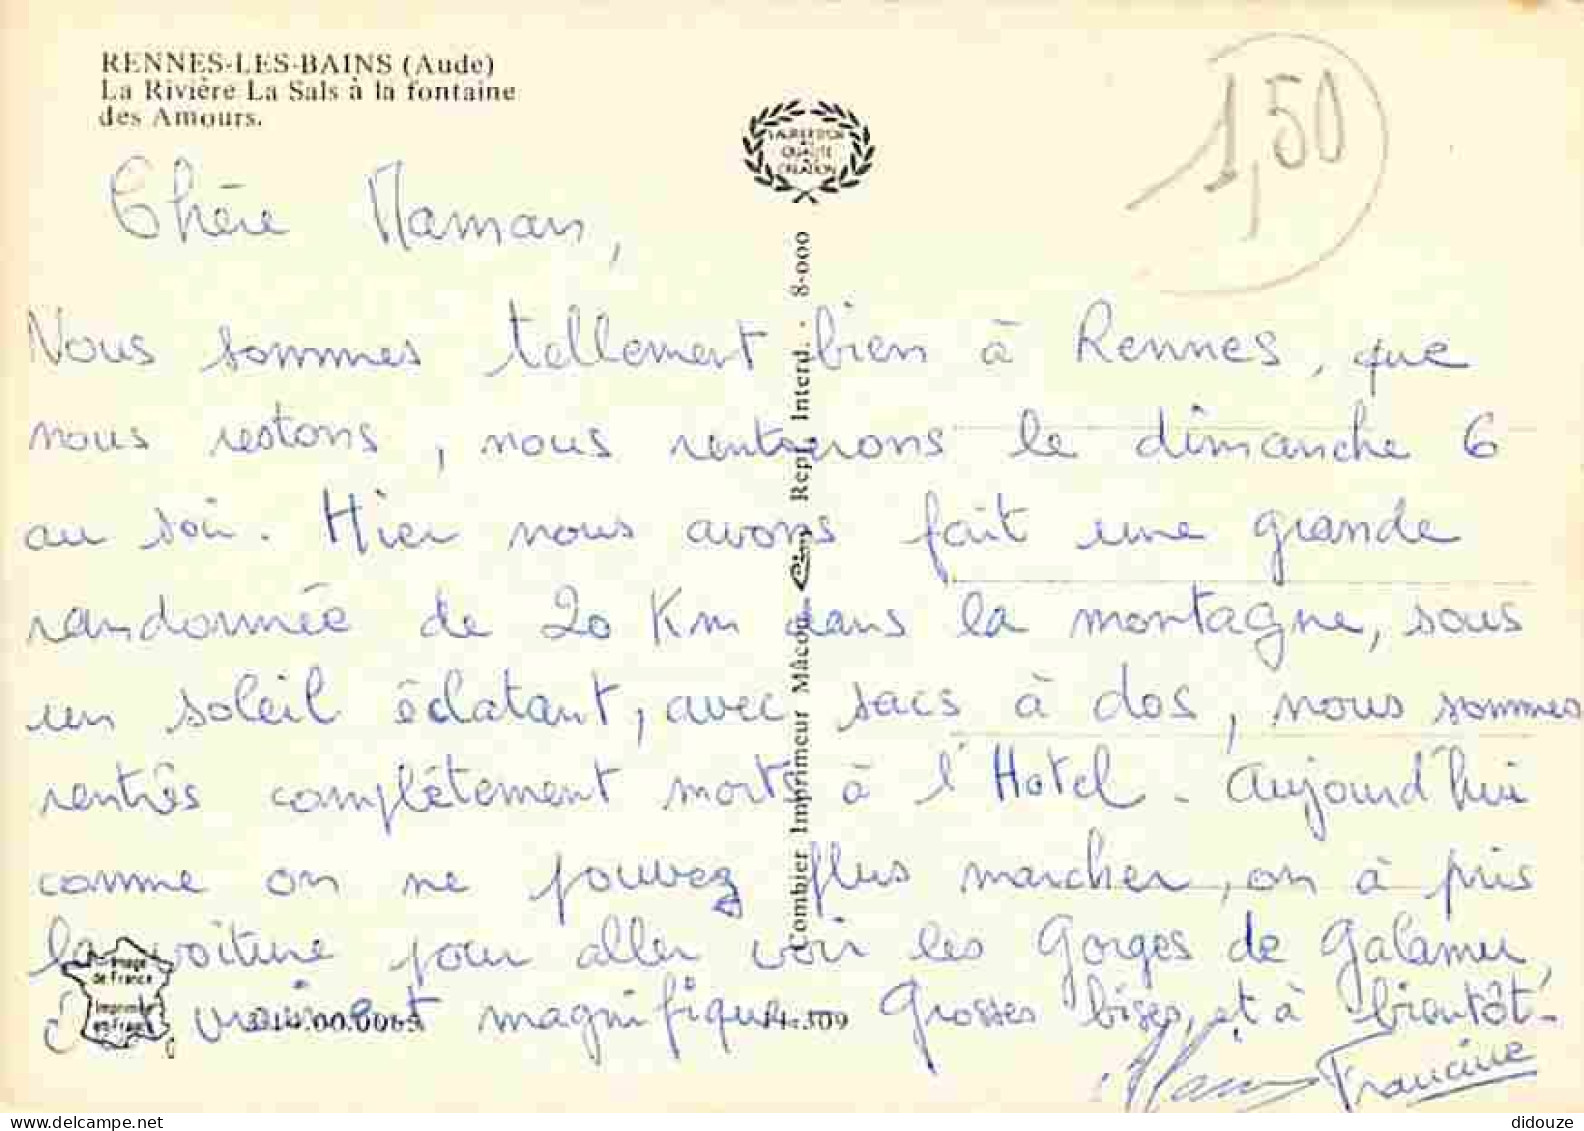 RENNES-LES-BAINS (Aude)
La Rivière La Sals à la fontaine
des Amours.
1,50
LAURIER D'OR
QUALITE
CREATION
Chère Maman,
Nous sommes tellement bien à Rennes, que
nous restons, nous rentrerons le dimanche 6
au soir. Hier nous avons fait une grande
randonnée de 20 Km dans la montagne, sous
un soleil éclatant, avec sacs à dos, nous sommes
rentrés complètement morts à l'Hotel - Aujourd'hui
comme on ne pouvez plus marcher, on à pris
la voiture pour aller voir les Gorges de Galamu,
vraiment magnifique - Grosses bises, et à bientôt -
Francine
Combier Imprimeur Mâcon - Cim Rep. Interd. - 8-000
Image
de France
Imprimée
en France
didouze